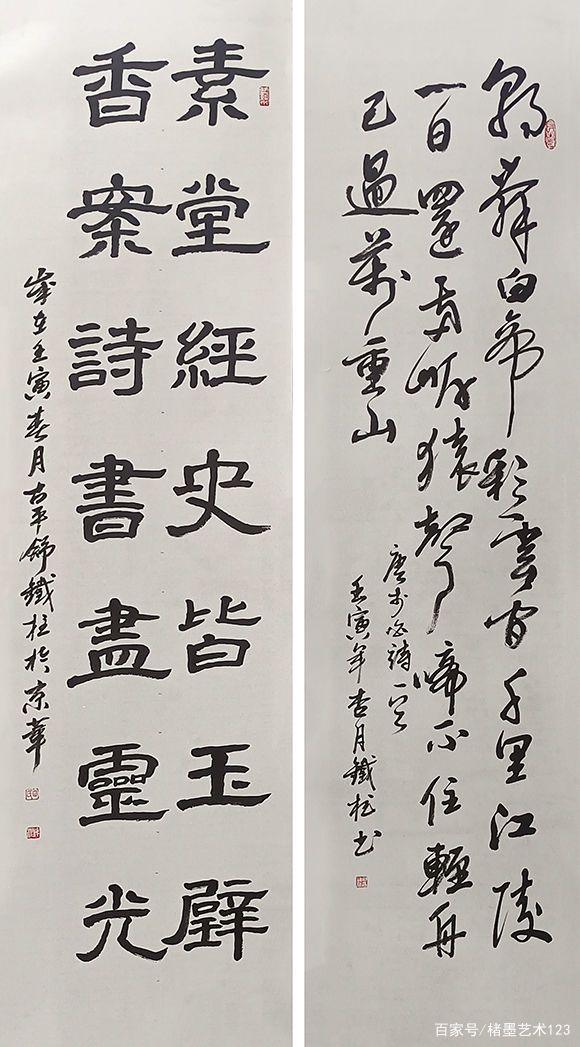 朝辭白帝彩雲間千里江陵
一日還兩岸猿聲啼不住輕舟
已過萬重山
唐李白詩一首
壬寅年杏月鐵柱书
素堂經史皆玉璧
香案詩書盡靈光
歲在壬寅春月古平舒鐵柱於京華
百家号/楮墨艺术123